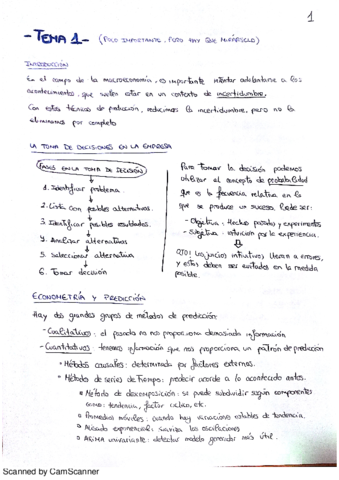 1
- TEMA 1 - (POCO IMPORTANTE, PERO HAY QUE MIRÁRSELO)
INTRODUCCIÓN
En el campo de la macroeconomía, es importante intentar adelantarse a los
acontecimientos, que suelen estar en un contexto de incertidumbre.
Con estas técnicas de predicción, reducimos la incertidumbre, pero no la
eliminamos por completo
LA TOMA DE DECISIONES EN LA EMPRESA
FASES EN LA TOMA DE DECISIÓN
1. Identificar problema
2. Lista con posibles alternativas.
3. Identificar posibles resultados.
4. Analizar alternativas
5. Seleccionar alternativa
6. Tomar decisión
Para tomar la decisión podemos
utilizar el concepto de probabilidad
que es la frecuencia relativa en la
que se produce un suceso. Puede ser:
- Objetiva: Hechos pasados y experimentos
- Subjetiva: intuición por la experiencia.
OJO! Los juicios intuitivos llevan a errores,
y estos deben ser evitados en la medida
posible.
ECONOMETRÍA Y PREDICCIÓN
Hay dos grandes grupos de métodos de predicción:
- Cualitativos: el pasado no nos proporciona demasiada información
- Cuantitativos: tenemos información que nos proporciona un patrón de predicción
• Métodos causales: determinado por factores externos.
• Método de series de tiempo: predecir acorde a lo acontecido antes.
Método de descomposición: se puede subdividir según componentes
como: tendencia, factor cíclico, etc.
Promedios móviles: cuando hay variaciones estables de tendencia.
Alisado exponencial: suaviza las oscilaciones
ARIMA univariante: detectar modelo generador más útil.
Scanned by CamScanner